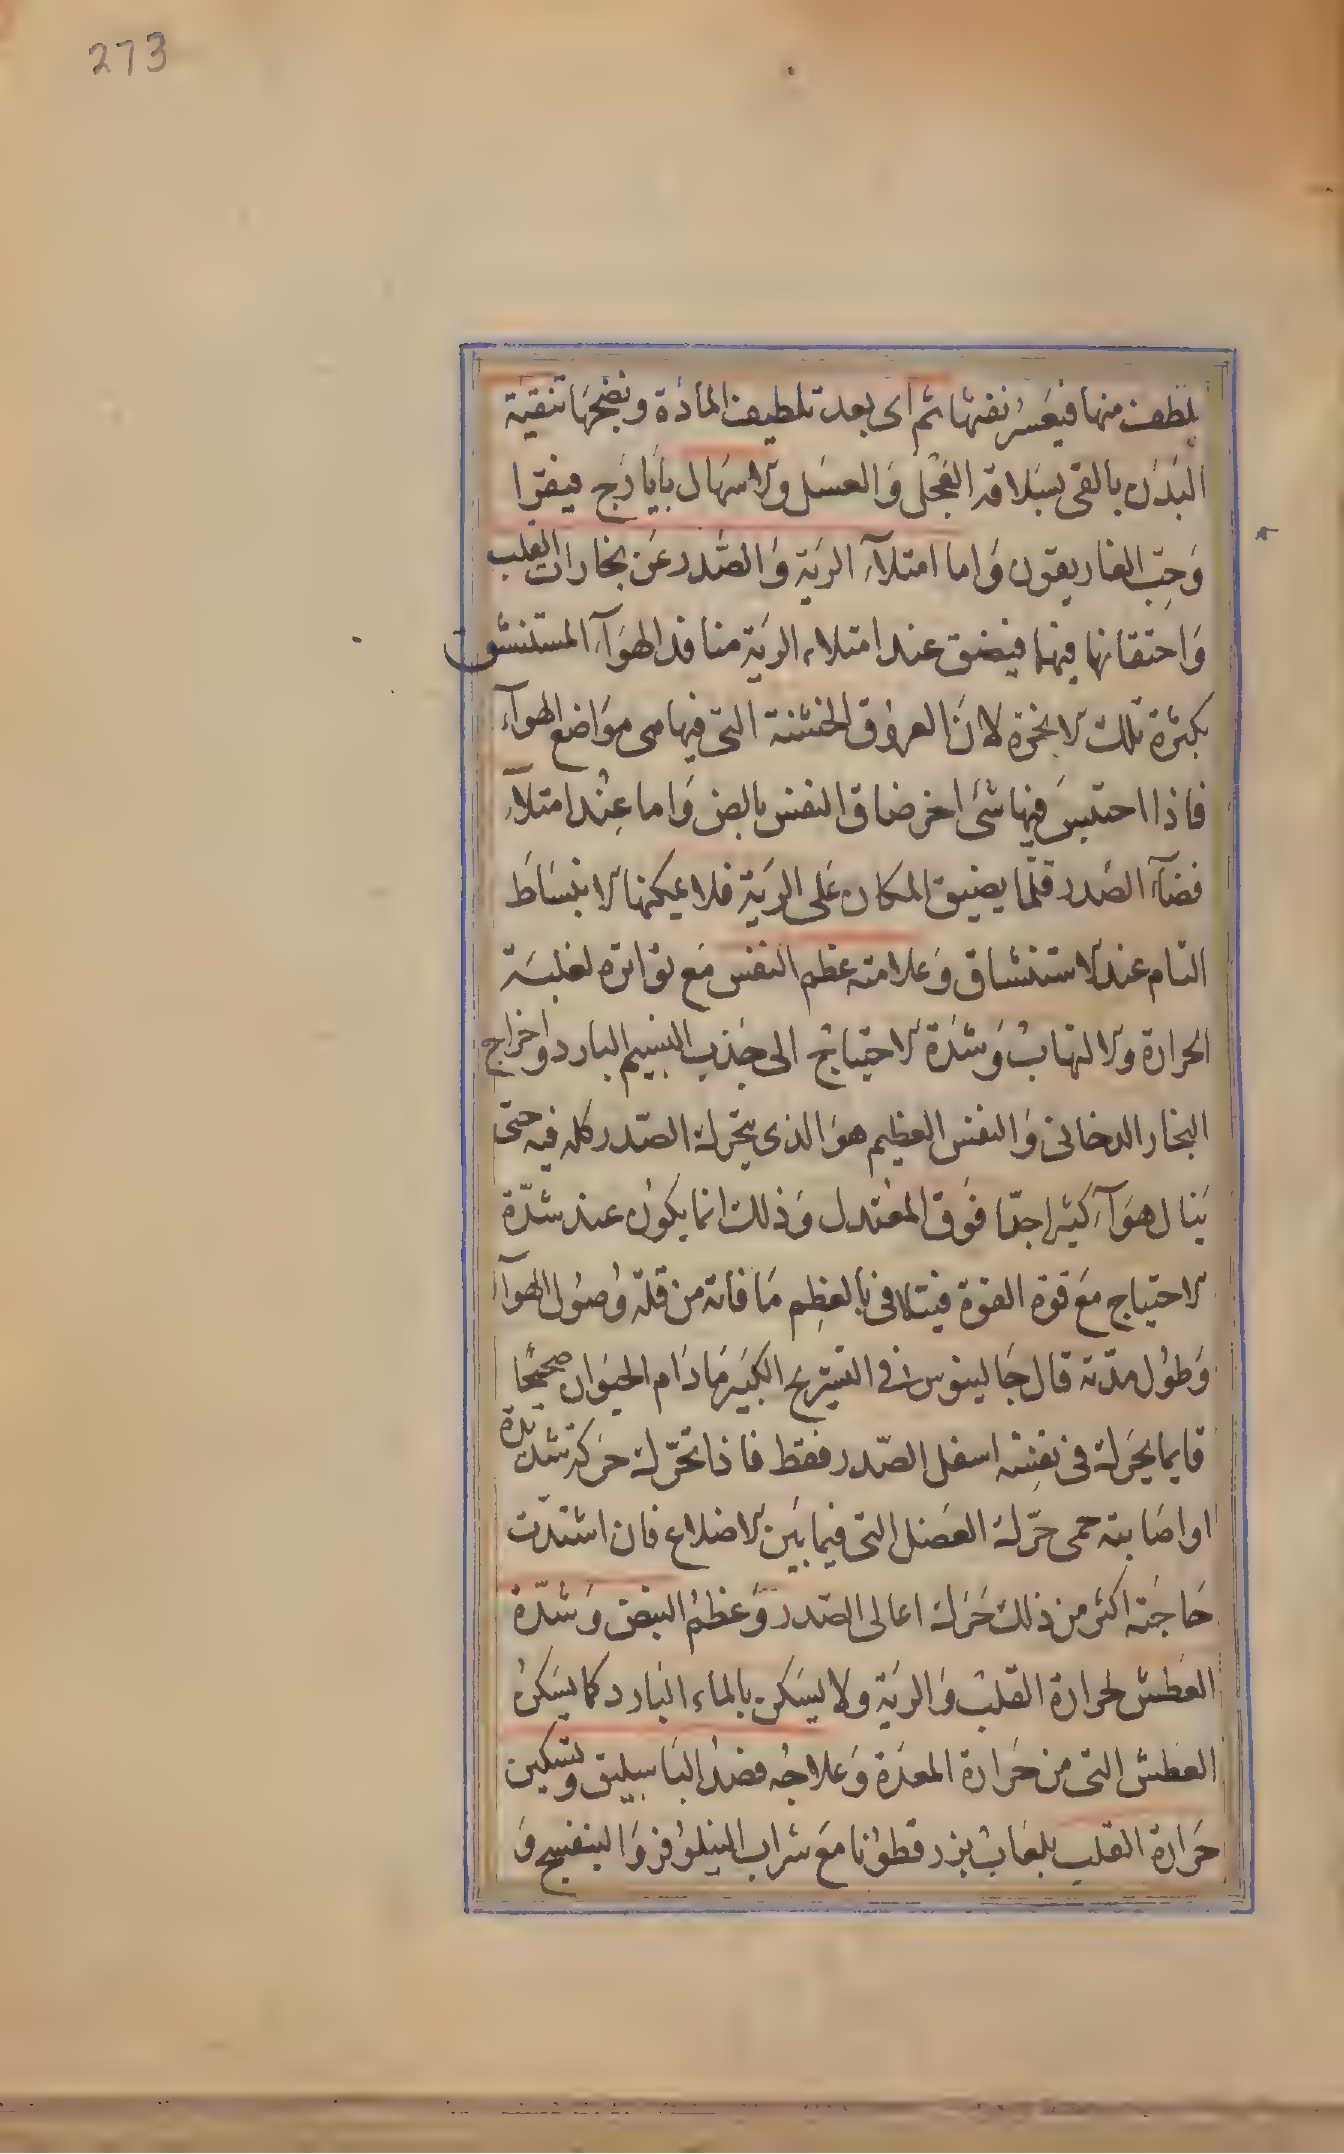 273
يلطف منها فيعسر نفثها ثم اى بعد تلطيف المادة ونضجها تنقية
البدن بالقى بسلاقة الفجل والعسل والاسهال بايارج فيقرا
وحب الغاريقون واما امتلاء الرية والصدر عن بخارات القلب
واحتقانها فيهما فيضيق عند امتلاء الرية منافذ الهواء المستنشق
بكثرة تلك الابخرة لان العروق الخشنة التى فيها هى مواضع الهواء
فاذا احتبس فيها شئ اخر ضاق النفس بالضرورة واما عند امتلاء
فضاء الصدر فلما يضيق المكان على الرية فلا يمكنها الانبساط
التام عند الاستنشاق وعلامته عظم النفس مع تواتره لغلبة
الحرارة والالتهاب وشدة الاحتياج الى جذب النسيم البارد واخراج
البخار الدخانى والنفس العظيم هو الذى يتحرك الصدر كله فيه حتى
ينال هواء كثيرا جدا فوق المعتدل وذلك انما يكون عند شدة
الاحتياج مع قوة القوة فيتلافى بالعظم ما فاته من قلة وصول الهواء
وطول مدته قال جالينوس فى التشريح الكبير مادام الحيوان صحيحا
قايما يحرك فى نفسه اسفل الصدر فقط فاذا تحرك حركة شديدة
او اصابته حمى حرك العضل التى فيما بين الاضلاع فان اشتدت
حاجته اكثر من ذلك حرك اعالى الصدر وعظم النبض وشدة
العطش لحرارة القلب والرية ولا يسكن بالماء البارد كما يسكن
العطش التى من حرارة المعدة وعلاجه فصد الباسليق وتسكين
حرارة القلب بلعاب بزر قطونا مع شراب النيلوفر والبنفسج و